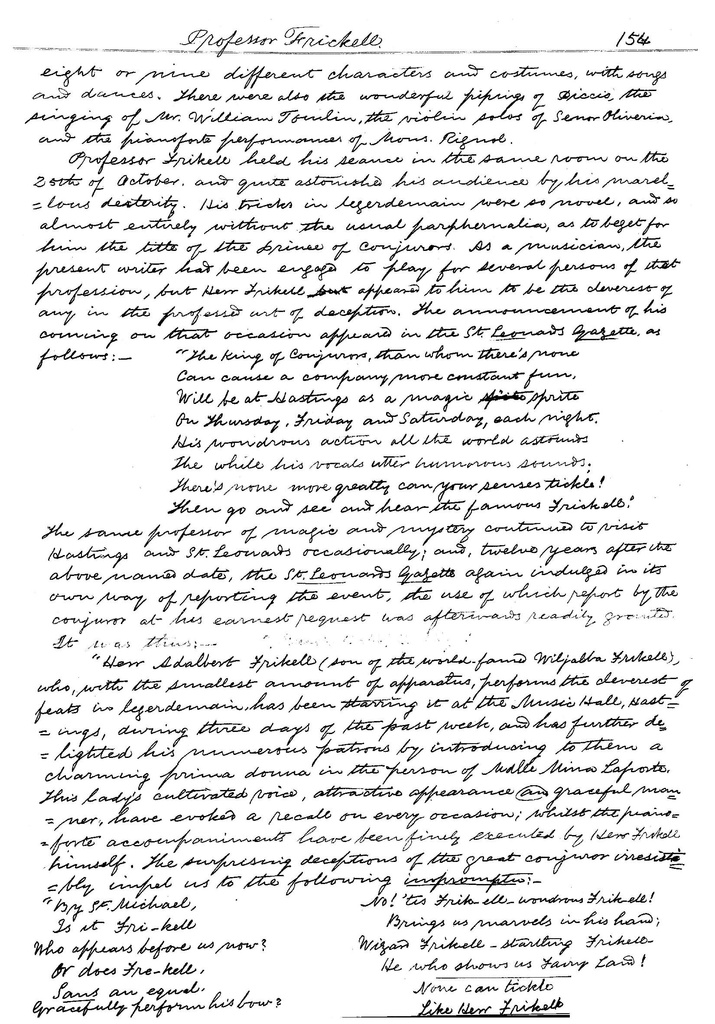 Professor Frickell. 154
eight or nine different characters and costumes, with songs
and dances. There were also the wonderful pipings of Piccio, the
singing of Mr. William Tomlin, the violin solos of Senor Oliveria,
and the pianoforte performances of Mons. Rignol.
Professor Frikell held his seance in the same room on the
20th of October. and quite astonished his audience by his marel=
=lous dexterity. His tricks in legerdemain were so novel, and so
almost entirely without the usual parphernalia, as to beget for
him the title of the prince of conjurors. As a musician, the
present writer had been engaged to play for several persons of that
profession, but Herr Frikell appeared to him to be the cleverest of
any in the professed art of deception. The announcement of his
coming on that occasion appeared in the St. Leonards Gazette, as
follows:—
"The King of Conjurors, than whom there's none
Can cause a company more constant fun,
Will be at Hastings as a magic sprite
On Thursday, Friday and Saturday, each night.
His wondrous action all the world astounds
The while his vocals utter humorous sounds;
There's none more greatly can your senses tickle!
Then go and see and hear the famous Frickell!
The same professor of magic and mystery continued to visit
Hastings and St. Leonards occasionally; and, twelve years after the
above named date, the St. Leonards Gazette again indulged in its
own way of reporting the event, the use of which report by the
conjuror at his earnest request was afterwards readily granted.
It was thus:—
"Herr Adalbert Frikell (son of the world-famed Wiljalba Frikell),
who, with the smallest amount of apparatus, performs the cleverest of
feats in legerdemain, has been starring it at the Music Hall, Hast=
=ings, during three days of the past week, and has further de=
=lighted his numerous patrons by introducing to them a
charming prima donna in the person of Mdlle Mina Laporte.
This lady's cultivated voice, attractive appearance and graceful man=
=ner, have evoked a recall on every occasion; whilst the piano=
=forte accompaniments have been finely executed by Herr Frikell
himself. The surprising deceptions of the great conjuror irresisti=
=bly impel us to the following impromptu:—
"By St. Michael,
Is it Fri-kell
Who appears before us now?
Or does Fre-kell,
Sans an equal,
Gracefully perform his bow?
No! 'tis Frik-ell - wondrous Frik-ell!
Brings us marvels in his hand;
Wizard Frikell - startling Frikell
He who shows us Fairy Land!
None can tickle
Like Herr Frikell